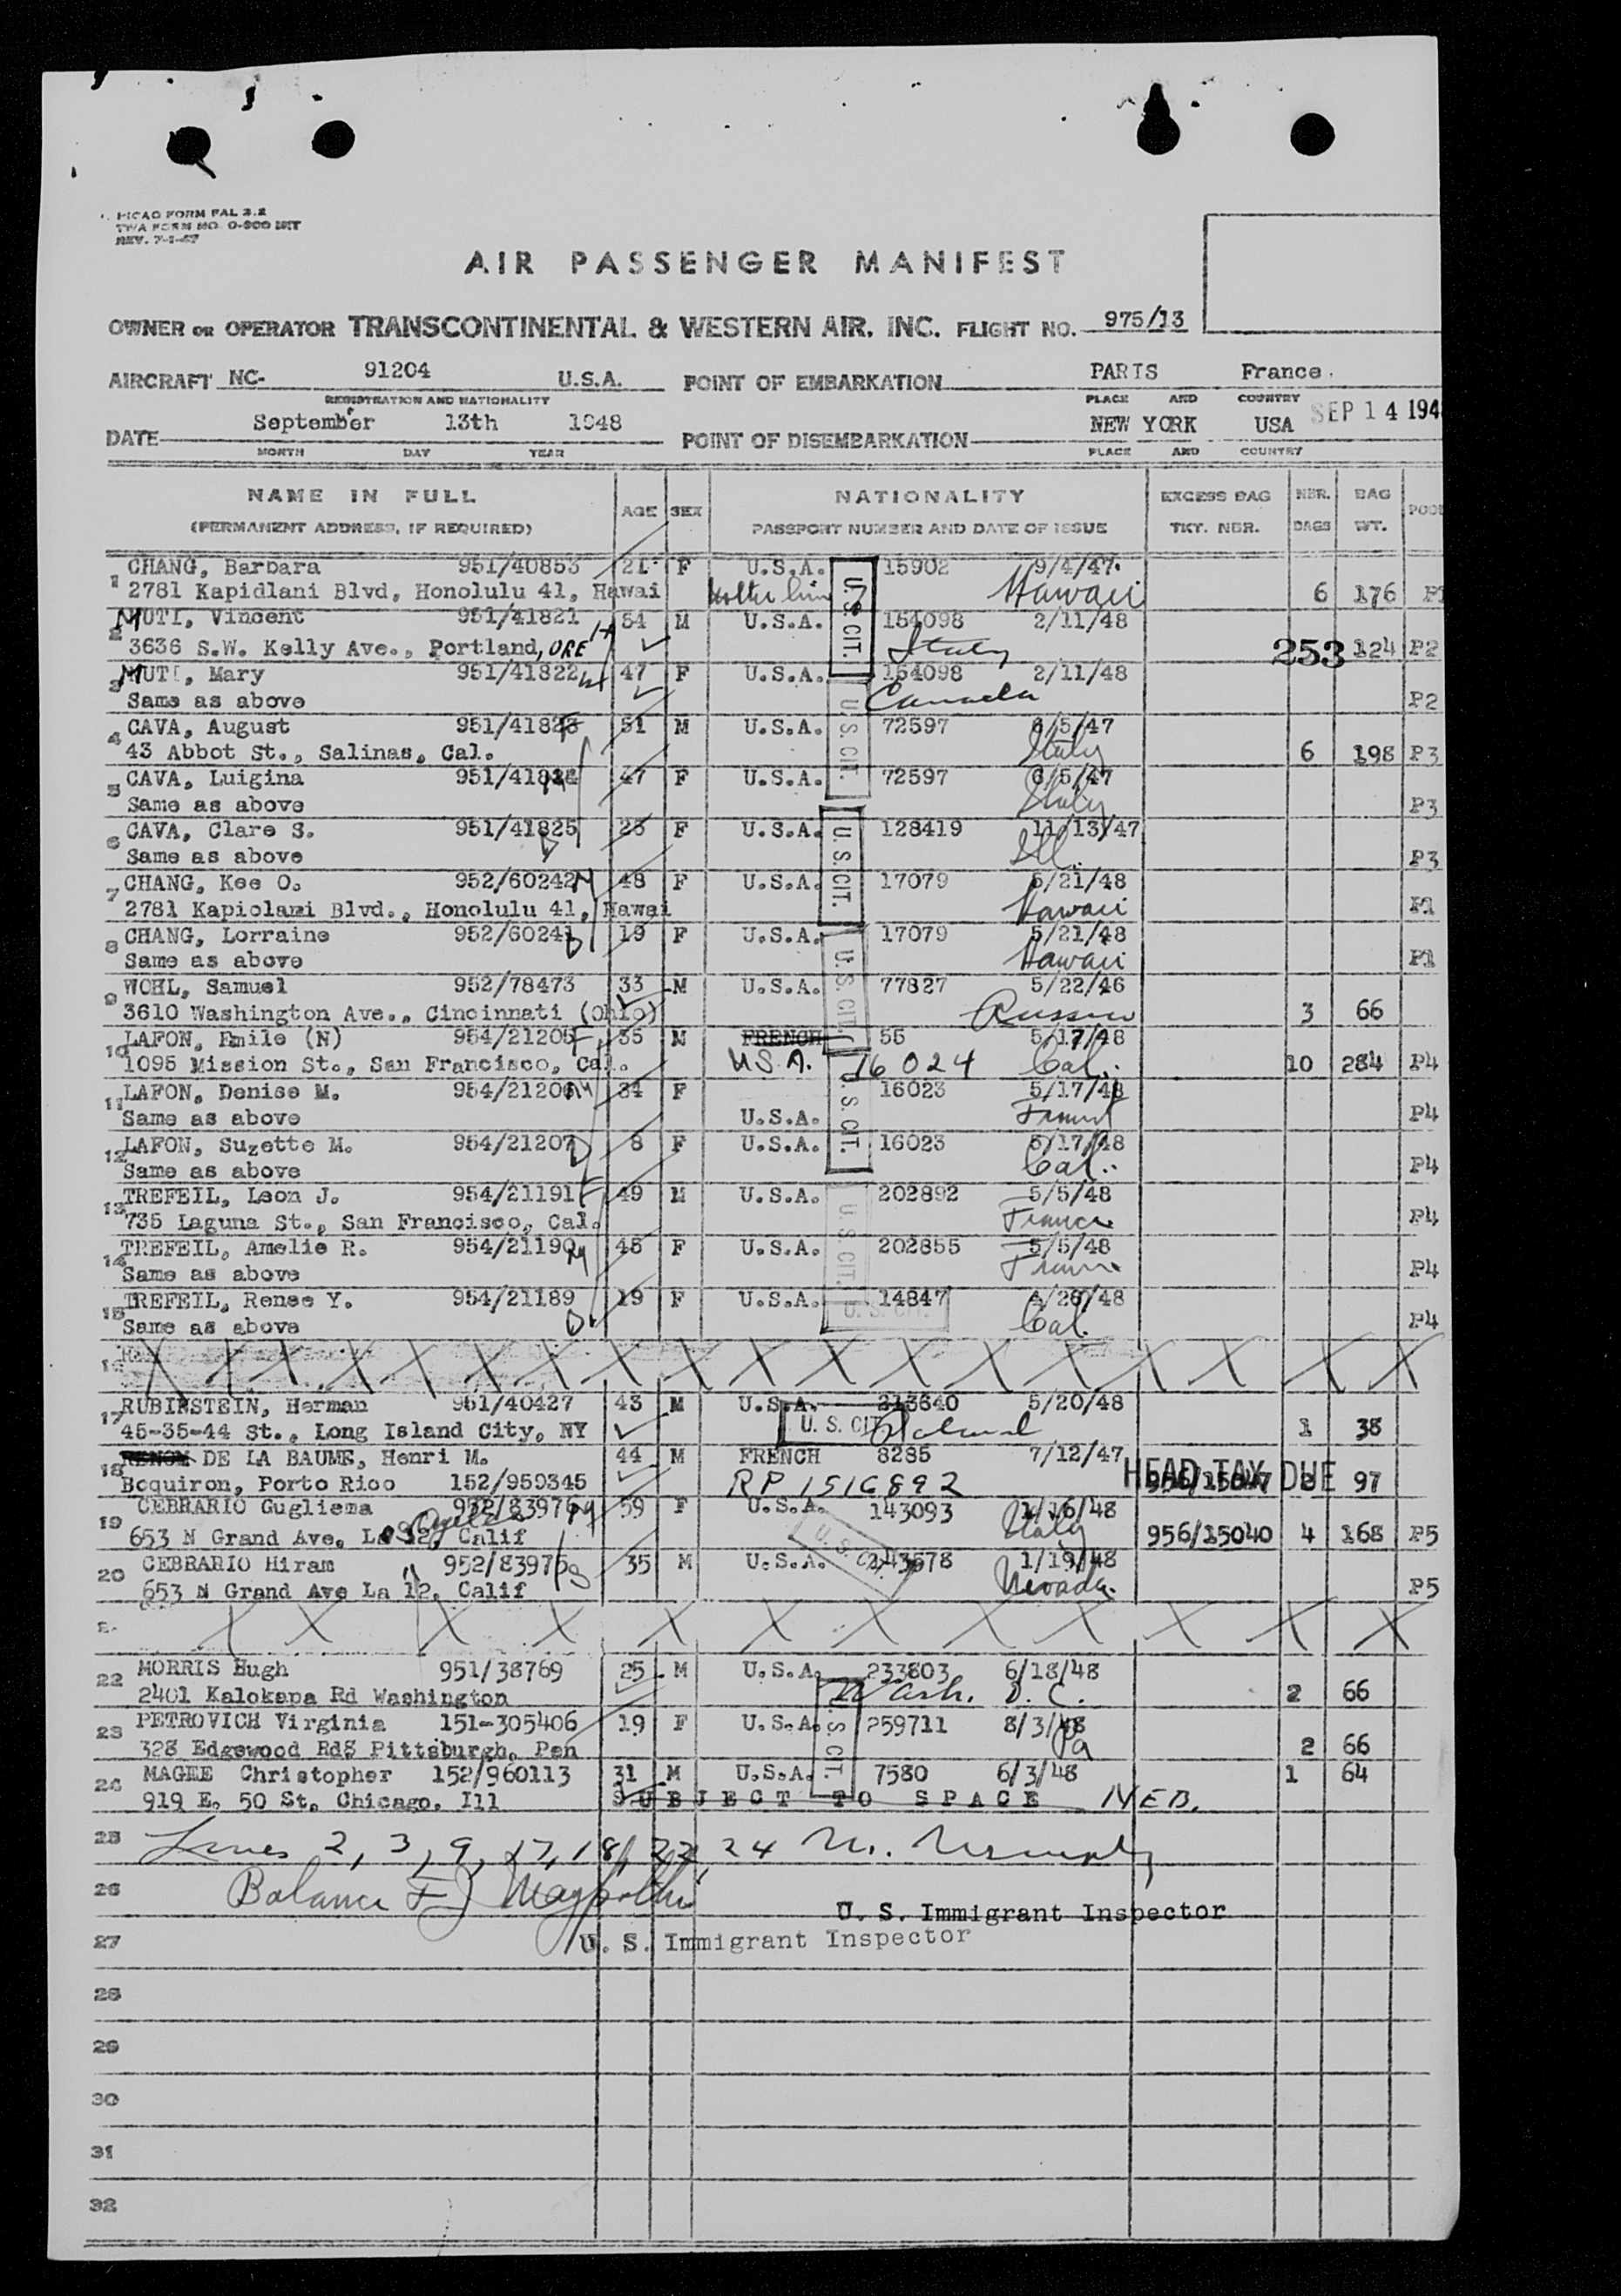 ICAO FORM FAL 2.2
TWA FORM NO. O-900 INT
REV. 7-1-47
AIR PASSENGER MANIFEST
OWNER OR OPERATOR TRANSCONTINENTAL & WESTERN AIR, INC. FLIGHT NO. 975/13
AIRCRAFT NC- 91204 U.S.A. POINT OF EMBARKATION PARIS France.
REGISTRATION AND NATIONALITY PLACE AND COUNTRY
DATE September 13th 1948 POINT OF DISEMBARKATION NEW YORK USA SEP 14 194
MONTH DAY YEAR PLACE AND COUNTRY
NAME IN FULL AGE SEX NATIONALITY EXCESS BAG NBR. BAG POOL
(PERMANENT ADDRESS, IF REQUIRED) PASSPORT NUMBER AND DATE OF ISSUE TKT. NBR. BAGS WT.
1 CHANG, Barbara 951/40853 21 F U.S.A. 15902 9/4/47.
2781 Kapidlani Blvd, Honolulu 41, Hawai Hawaii 6 176 P1
2 MUTI, Vincent 951/41821 54 M U.S.A. 154098 2/11/48
3636 S.W. Kelly Ave., Portland, ORE H Italy 253 124 P2
3 MUTI, Mary 951/41822 W 47 F U.S.A. 154098 2/11/48
Same as above Canada P2
4 CAVA, August 951/41823 F 51 M U.S.A. 72597 6/5/47
43 Abbot St., Salinas, Cal. Italy 6 198 P3
5 CAVA, Luigina 951/41824 M 47 F U.S.A. 72597 6/5/47
Same as above Italy P3
6 CAVA, Clare S. 951/41825 23 F U.S.A. 128419 11/13/47
Same as above D Ill. P3
7 CHANG, Kee O. 952/60242 M 48 F U.S.A. 17079 5/21/48
2781 Kapiolani Blvd., Honolulu 41, Hawai Hawaii P1
8 CHANG, Lorraine 952/60241 D 19 F U.S.A. 17079 5/21/48
Same as above Hawaii P1
9 WOHL, Samuel 952/78473 33 M U.S.A. 77827 5/22/46
3610 Washington Ave., Cincinnati (Ohio) Russia 3 66
10 LAFON, Emile (N) 954/21205 F 35 M FRENCH 55 5/17/48
1095 Mission St., San Francisco, Cal. U.S.A. 16024 Cal. 10 284 P4
11 LAFON, Denise M. 954/21206 M 34 F 16023 5/17/48
Same as above U.S.A. France P4
12 LAFON, Suzette M. 954/21207 D 8 F U.S.A. 16023 5/17/48
Same as above Cal. P4
13 TREFEIL, Leon J. 954/21191 F 49 M U.S.A. 202892 5/5/48
735 Laguna St., San Francisco, Cal. France P4
14 TREFEIL, Amelie R. 954/21190 M 45 F U.S.A. 202855 5/5/48
Same as above France P4
15 TREFEIL, Renee Y. 954/21189 19 F U.S.A. 14847 4/26/48
Same as above D Cal. P4
U.S. CIT.
U.S. CIT.
U.S. CIT.
U.S. CIT.
U.S. CIT.
U.S. CIT.
U.S. CIT.
17 RUBINSTEIN, Herman 951/40427 43 M U.S.A. 213640 5/20/48
45-35-44 St., Long Island City, NY U. S. CIT Poland 1 38
18 DE LA BAUME, Henri M. 44 M FRENCH 8285 7/12/47 HEAD TAX DUE
Boquiron, Porto Rico 152/959345 RP 1516892 97
19 CEBRARIO Gugliema M 59 F U.S.A. 143093 1/16/48
653 N Grand Ave, La 12, Calif Italy 956/15040 4 168 P5
20 CEBRARIO Hiram 35 M U.S.A. 1/19/48
653 N Grand Ave La 12, Calif U.S. CIT. Nevada. P5
22 MORRIS Hugh 951/38769 25 M U.S.A. 233803 6/18/48
2401 Kalokapa Rd Washington Wash. D.C. 2 66
23 PETROVICH Virginia 151-305406 19 F U.S.A. 259711 8/3/48
328 Edgewood RdS Pittsburgh, Pen U.S. CIT. Pa 2 66
24 MAGEE Christopher 152/960113 31 M U.S.A. 7580 6/3/48 1 64
919 E, 50 St, Chicago, Ill SUBJECT TO SPACE NEB.
25 Lines 2, 3, 9, 17, 18, 22, 24
26 Balance
U. S. Immigrant Inspector
27 U. S. Immigrant Inspector
28
29
30
31
32